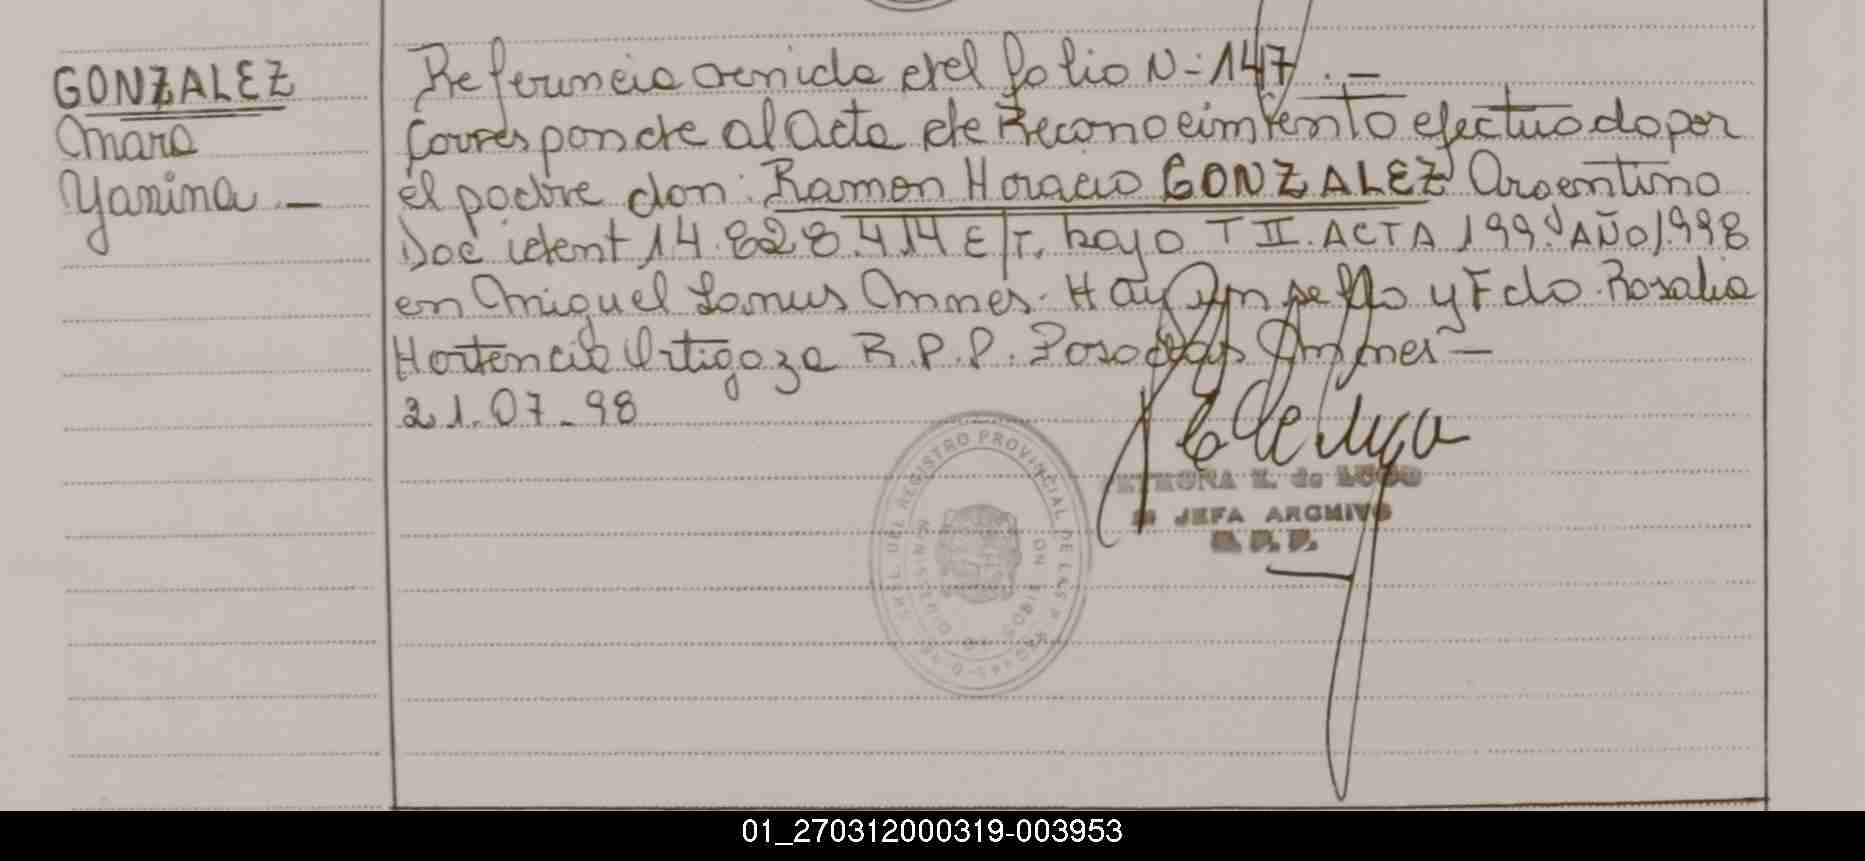 GONZALEZ
Mara
Yanina -
Referencia venida del folio N-147.-
Corresponde al acta de Reconocimiento efectuado por
el padre don: Ramon Horacio GONZALEZ Argentino
Doc ident 14.828.414 E/T. bajo T II. ACTA 199. AÑO 1.998
en Miguel Lanus Mnes. Hay un sello y Fdo. Rosalia
Hortencia Ortigoza R.P.P. Posadas Mnes -
21.07-98
REGISTRO PROVINCIAL DE LAS P
K. de LUGO
JEFA ARCHIVO
R.P.P.
01_270312000319-003953